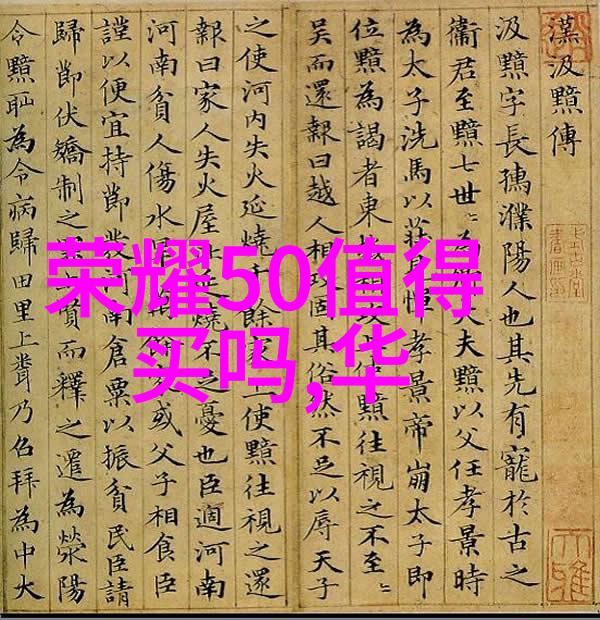 漢汲黯傳
汲黯字長孺濮陽人也其先有寵於古之
衞君至黯七世〻大夫黯以父任孝景時
為太子洗馬以莊見憚孝景帝崩太子即
位黯為謁者東越相攻上使黯往視之不至〻
吳而還報曰越人相攻固其俗然不足以辱天子
之使河內失火延燒千餘家上使黯往視之還
報曰家人失火屋比延燒不足憂也臣適河南
河南貧人傷水旱萬餘家或父子相食臣
謹以便宜持節發河南倉粟以振貧民臣請
歸節伏矯制之罪上賢而釋之遷為滎陽
令黯恥為令病歸田里上聞乃召拜為中大
荣耀50值得
买吗,华